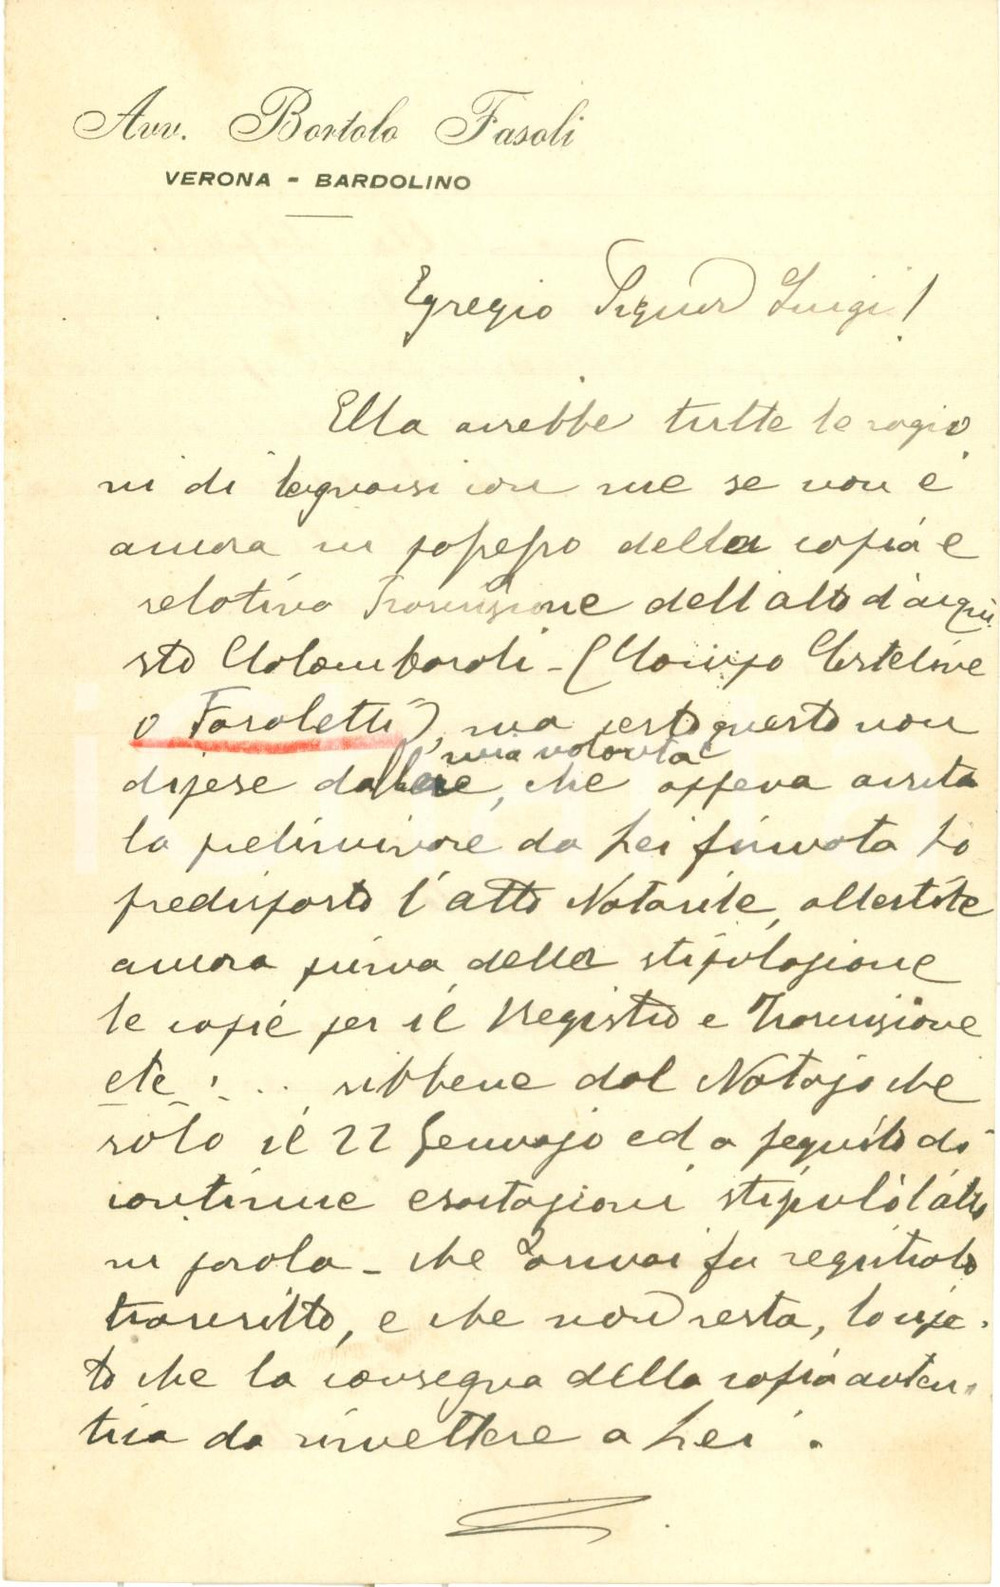 Avv. Bortolo Fasoli
VERONA - BARDOLINO
Egregio Signor Luigi!
Ella avrebbe tutte le ragio
ni di lagnarsi con me se non è
ancora in possesso della copia e
relativa Trascrizione dell'atto d'acqui
sto Colombaroli - (
o Faroletti), ma certo questo non
mia volontà
dipese dalla, che appena avuta
la preliminare da Lei firmata ho
predisposto l'atto Notarile, allestite
ancora prima della stipulazione
le copie per il Registro e Trascrizione
etc : . . . sibbene dal Notajo che
solo il 22 Gennajo ed a seguito di
continue esortazioni stipulò l'atto
in parola - che ormai fu registrato
trascritto, e che non resta,
to che la consegna della copia auten-
tica da rimettere a Lei .